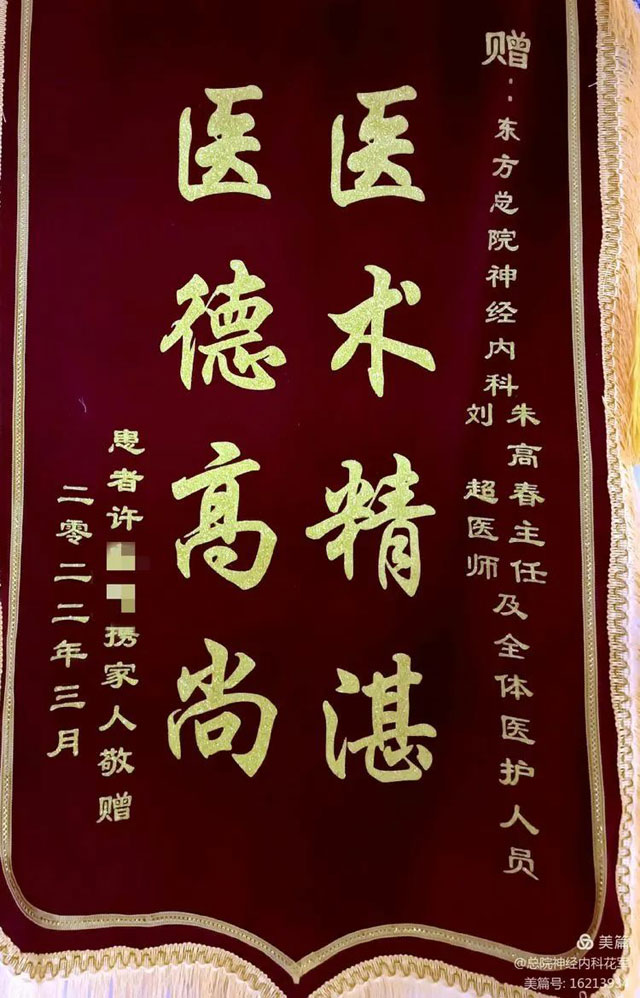 赠：东方总院神经内科
朱高春主任
刘超医师
及全体医护人员
医术精湛
医德高尚
患者许
携家人敬赠
二零二二年三月
美篇
@总院神经内科花
美篇号: 1621399